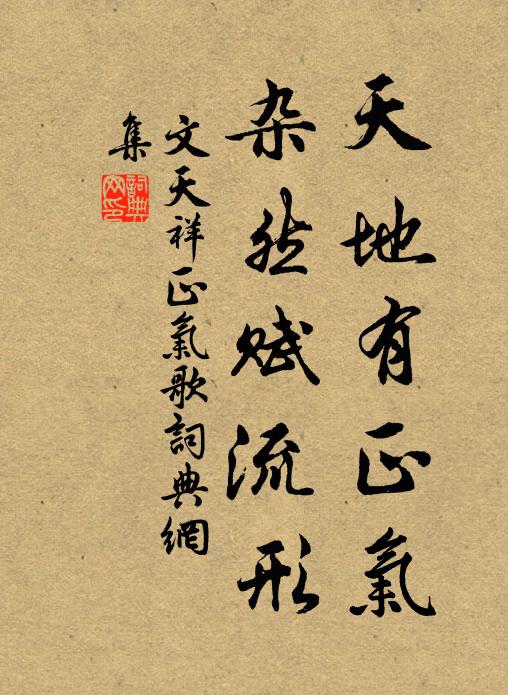 天地有正氣
杂然赋流形
文天祥正氣歌詞典網
集
詞典
网印